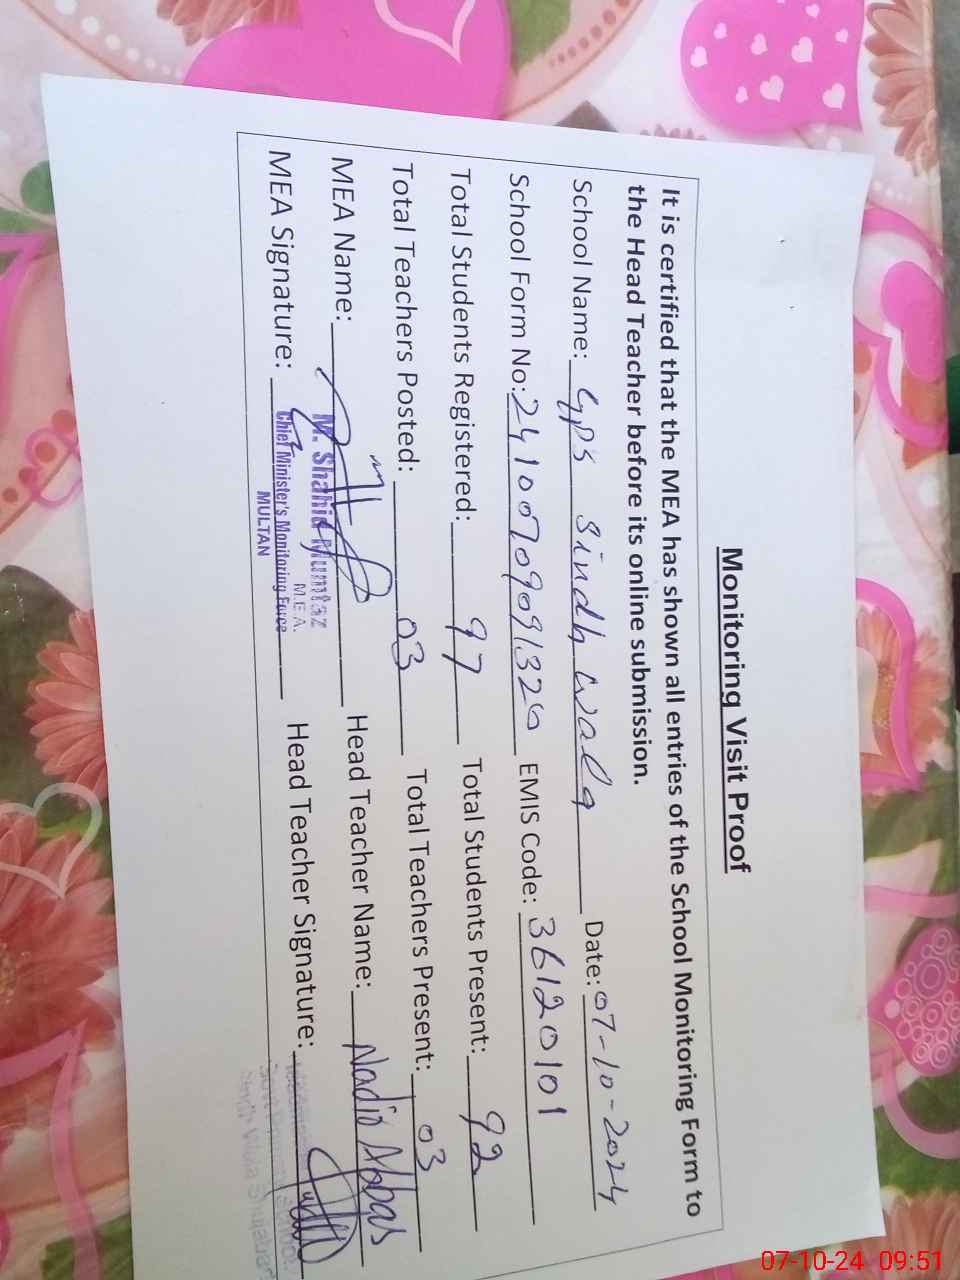 Monitoring Visit Proof
It is certified that the MEA has shown all entries of the School Monitoring Form to
the Head Teacher before its online submission.
School Name: GPS Sindh wala Date: 07-10-2024
School Form No: 24100709091326 EMIS Code: 36120101
Total Students Registered: 97 Total Students Present: 92
Total Teachers Posted: 03 Total Teachers Present: 03
MEA Name: Head Teacher Name: Nadia Abbas
M. Shahid Mumtaz
M.E.A.
MEA Signature: Chief Minister's Monitoring Force Head Teacher Signature:
MULTAN
07-10-24 09:51